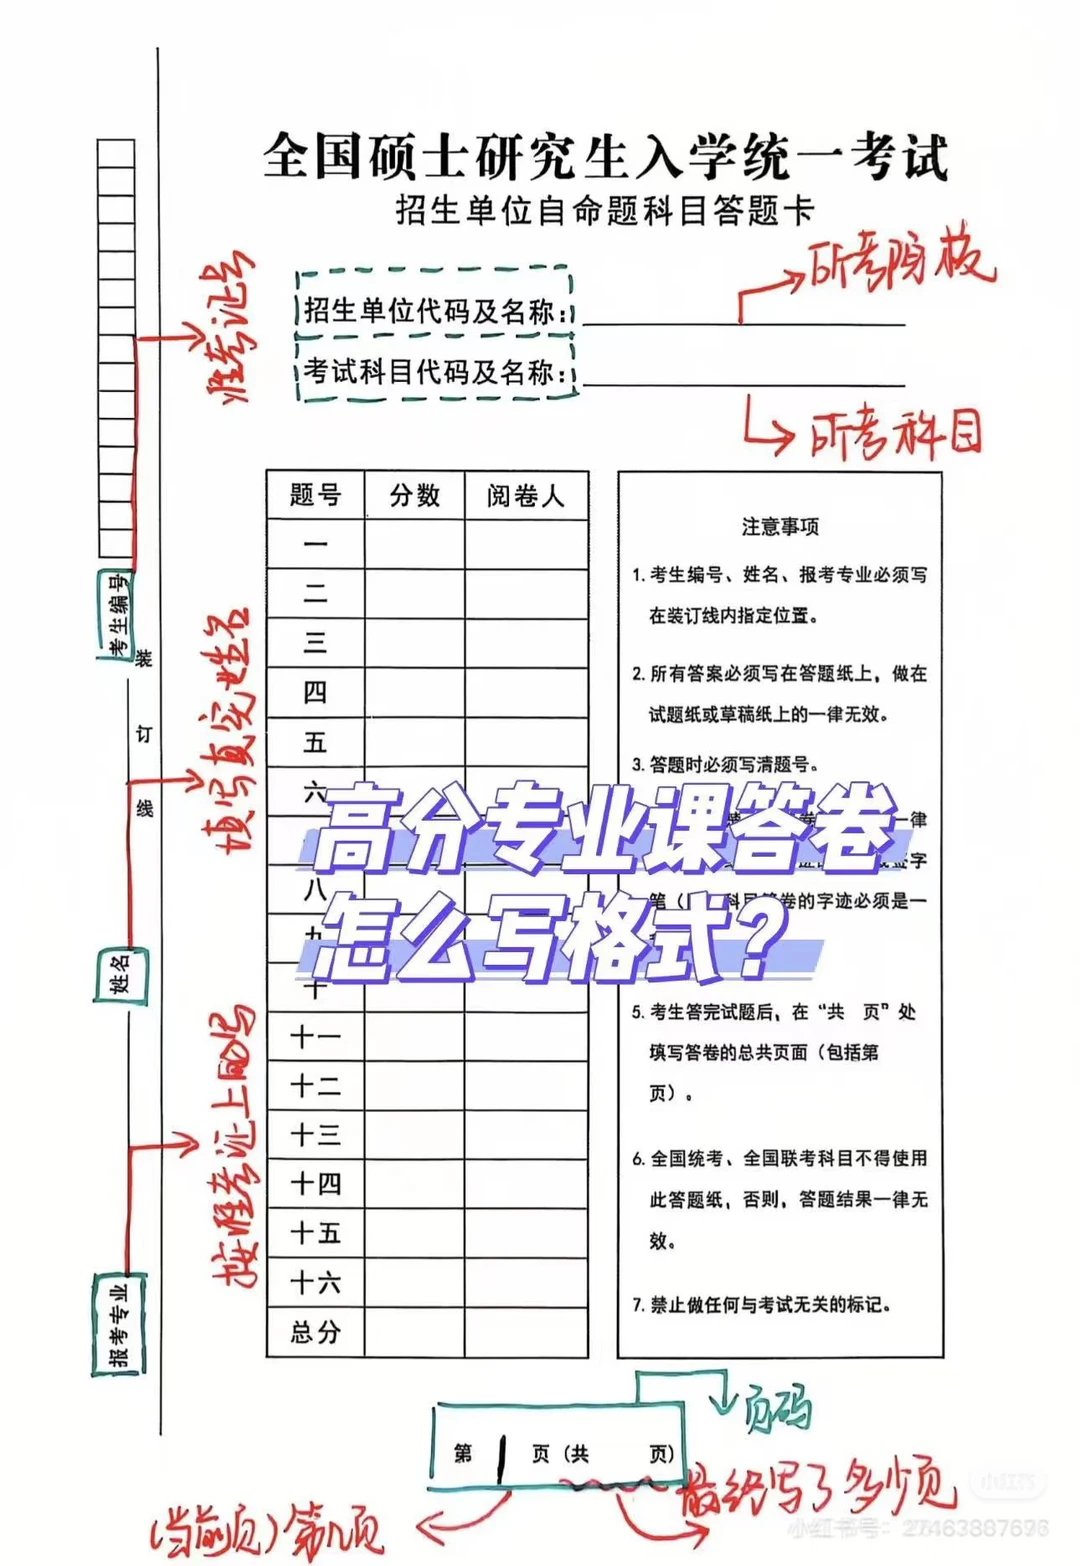 全国硕士研究生入学统一考试
招生单位自命题科目答题卡
招生单位代码及名称：
所考院校
考试科目代码及名称：
所考科目
准考证号
考生编号
填写真实姓名
姓名
按准考证上的写
报考专业
装
订
线
题号 分数 阅卷人
一
二
三
四
五
六
八
九
十
十一
十二
十三
十四
十五
十六
总分
注意事项
1. 考生编号、姓名、报考专业必须写
在装订线内指定位置。
2. 所有答案必须写在答题纸上，做在
试题纸或草稿纸上的一律无效。
3. 答题时必须写清题号。
一律
签字
笔（
科目答卷的字迹必须是一
5. 考生答完试题后，在“共 页”处
填写答卷的总共页面（包括第
页）。
6. 全国统考、全国联考科目不得使用
此答题纸，否则，答题结果一律无
效。
7. 禁止做任何与考试无关的标记。
高分专业课答卷
怎么写格式？
页码
第 1 页（共 页）
最终写了多少页
（当前页）第几页
小红书
小红书号：27463887696